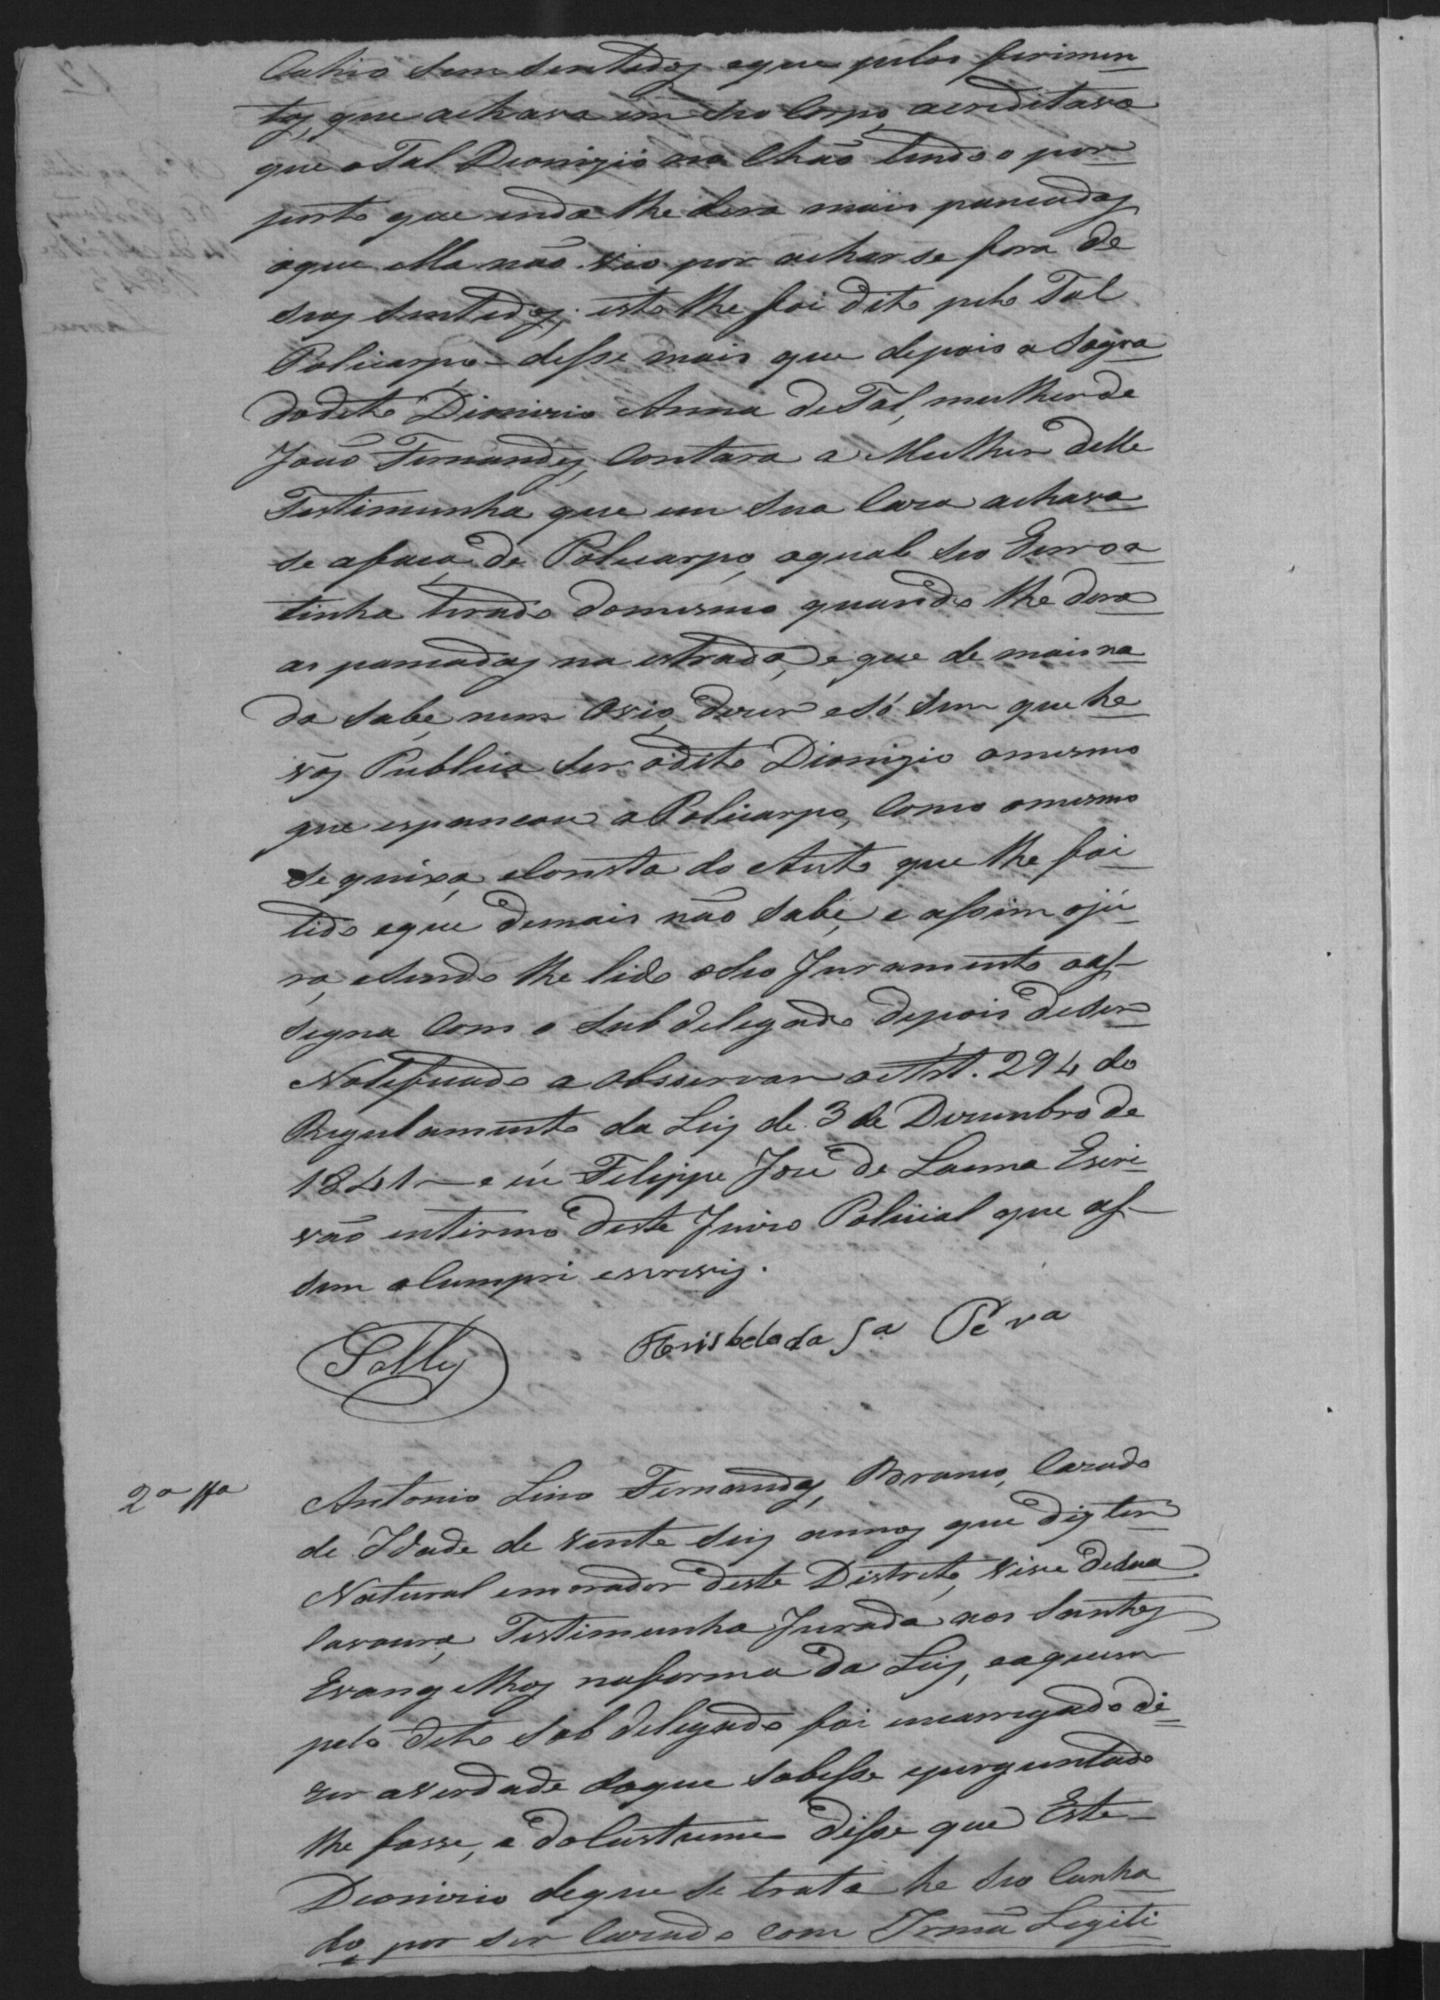 Cahio sem sentidos eque pelos ferimen-
tos, que achava em seo Corpo, acreditava
que o Tal Dionizio no Chão tendo o por
posto que inda lhe dera mais pancadas
oque ella não vio por achar se fora de
seus sentidos; isto lhe foi dito pelo Tal
Policarpo - disse mais que depois a Sogra
dodito Dionizio Anna de Tal, mulher de
João Fernandes, Contara a Mulher delle
Testimunha que em sua Caza achava-
se afaca de Policarpo, aqual seo Genro a
tinha tirado domesmo quando lhe dera
as pancadas na estrada, e que de mais na-
da sabe, nem Ovio dizer e só sim que he
vos Publica ser odito Dionizio omesmo
que espancou a Policarpo, Como omesmo
se queixa, eConsta do Auto que lhe foi
lido eque demais não sabe, e assim oju-
ra, esendo lhe lido oSeo Juramento as-
segna Com o Subdelegado depois deser
Notificado a observar o Art. 294 do
Regulamento da Ley de 3 de Dezembro de
1841 - e eu Felippe José de Launa Escri-
vão interino deste Juizo Policial que as-
sim oCumpri escrevy.
Salles
Florisbelo da Sª Pêrva
2ª ttª
Antonio Lino Fernandes, Branco, Cazado
de Idade de vinte seis annos que diz ter
Natural emorador deste Districto, vive desua
lavoura, Testimunha Jurada aos Santos
Evangelhos naforma da Ley, eaquem
pelo dito Subdelegado foi encarregado di-
zer averdade doque sobesse eperguntado
lhe fosse, e doCustume disse que Este
Dionizio deque se trata he seo Cunha-
do, por ser Cazado com Irmã Legiti